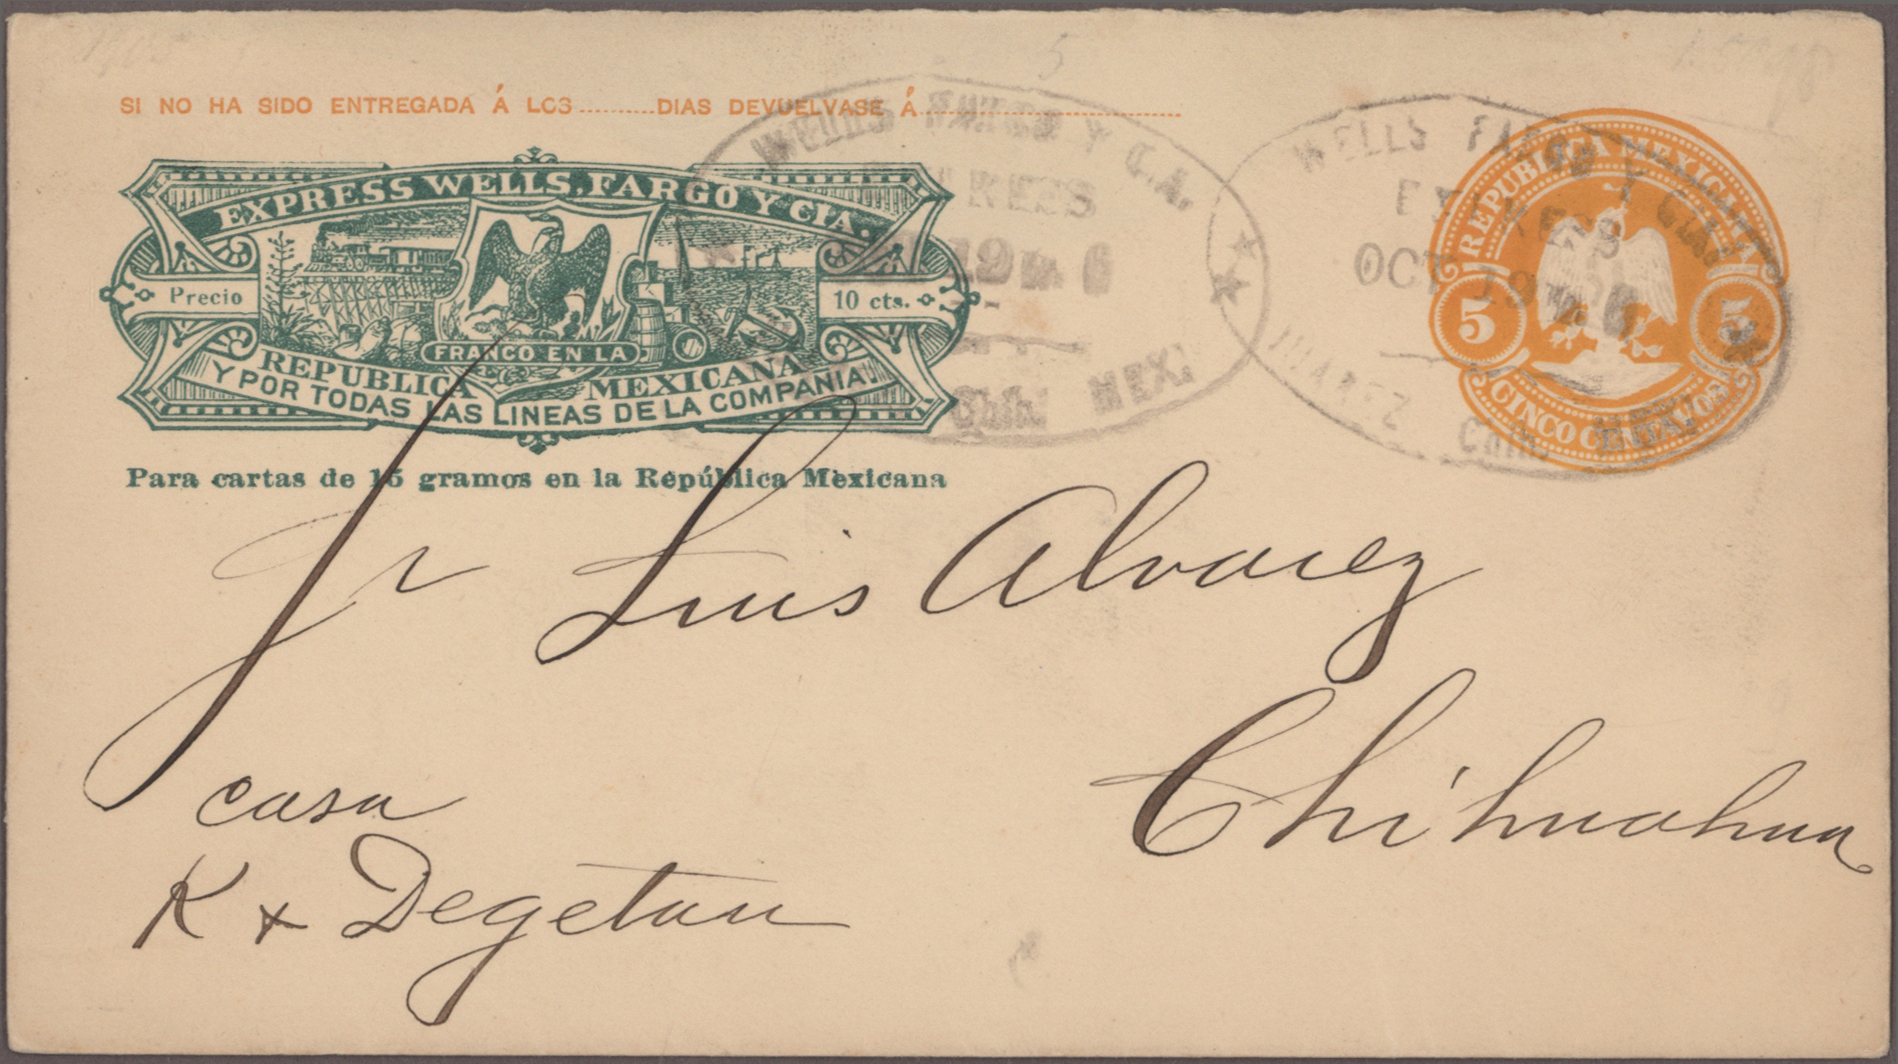 SI NO HA SIDO ENTREGADA Á LOS..........DIAS DEVUELVASE Á
EXPRESS WELLS, FARGO Y CIA.
Precio
10 cts.
FRANCO EN LA
REPUBLICA MEXICANA
Y POR TODAS LAS LINEAS DE LA COMPAÑIA.
Para cartas de 15 gramos en la República Mexicana
WELLS FARGO Y CIA.
19
Chih. MEX.
WELLS FARGO Y CIA.
EXPRESS
OCT 19
JUAREZ Chih. MEX.
REPUBLICA MEXICANA
5 5
CINCO CENTAVOS
Sr Luis Alvarez
Chihuahua
casa
K + Degetau